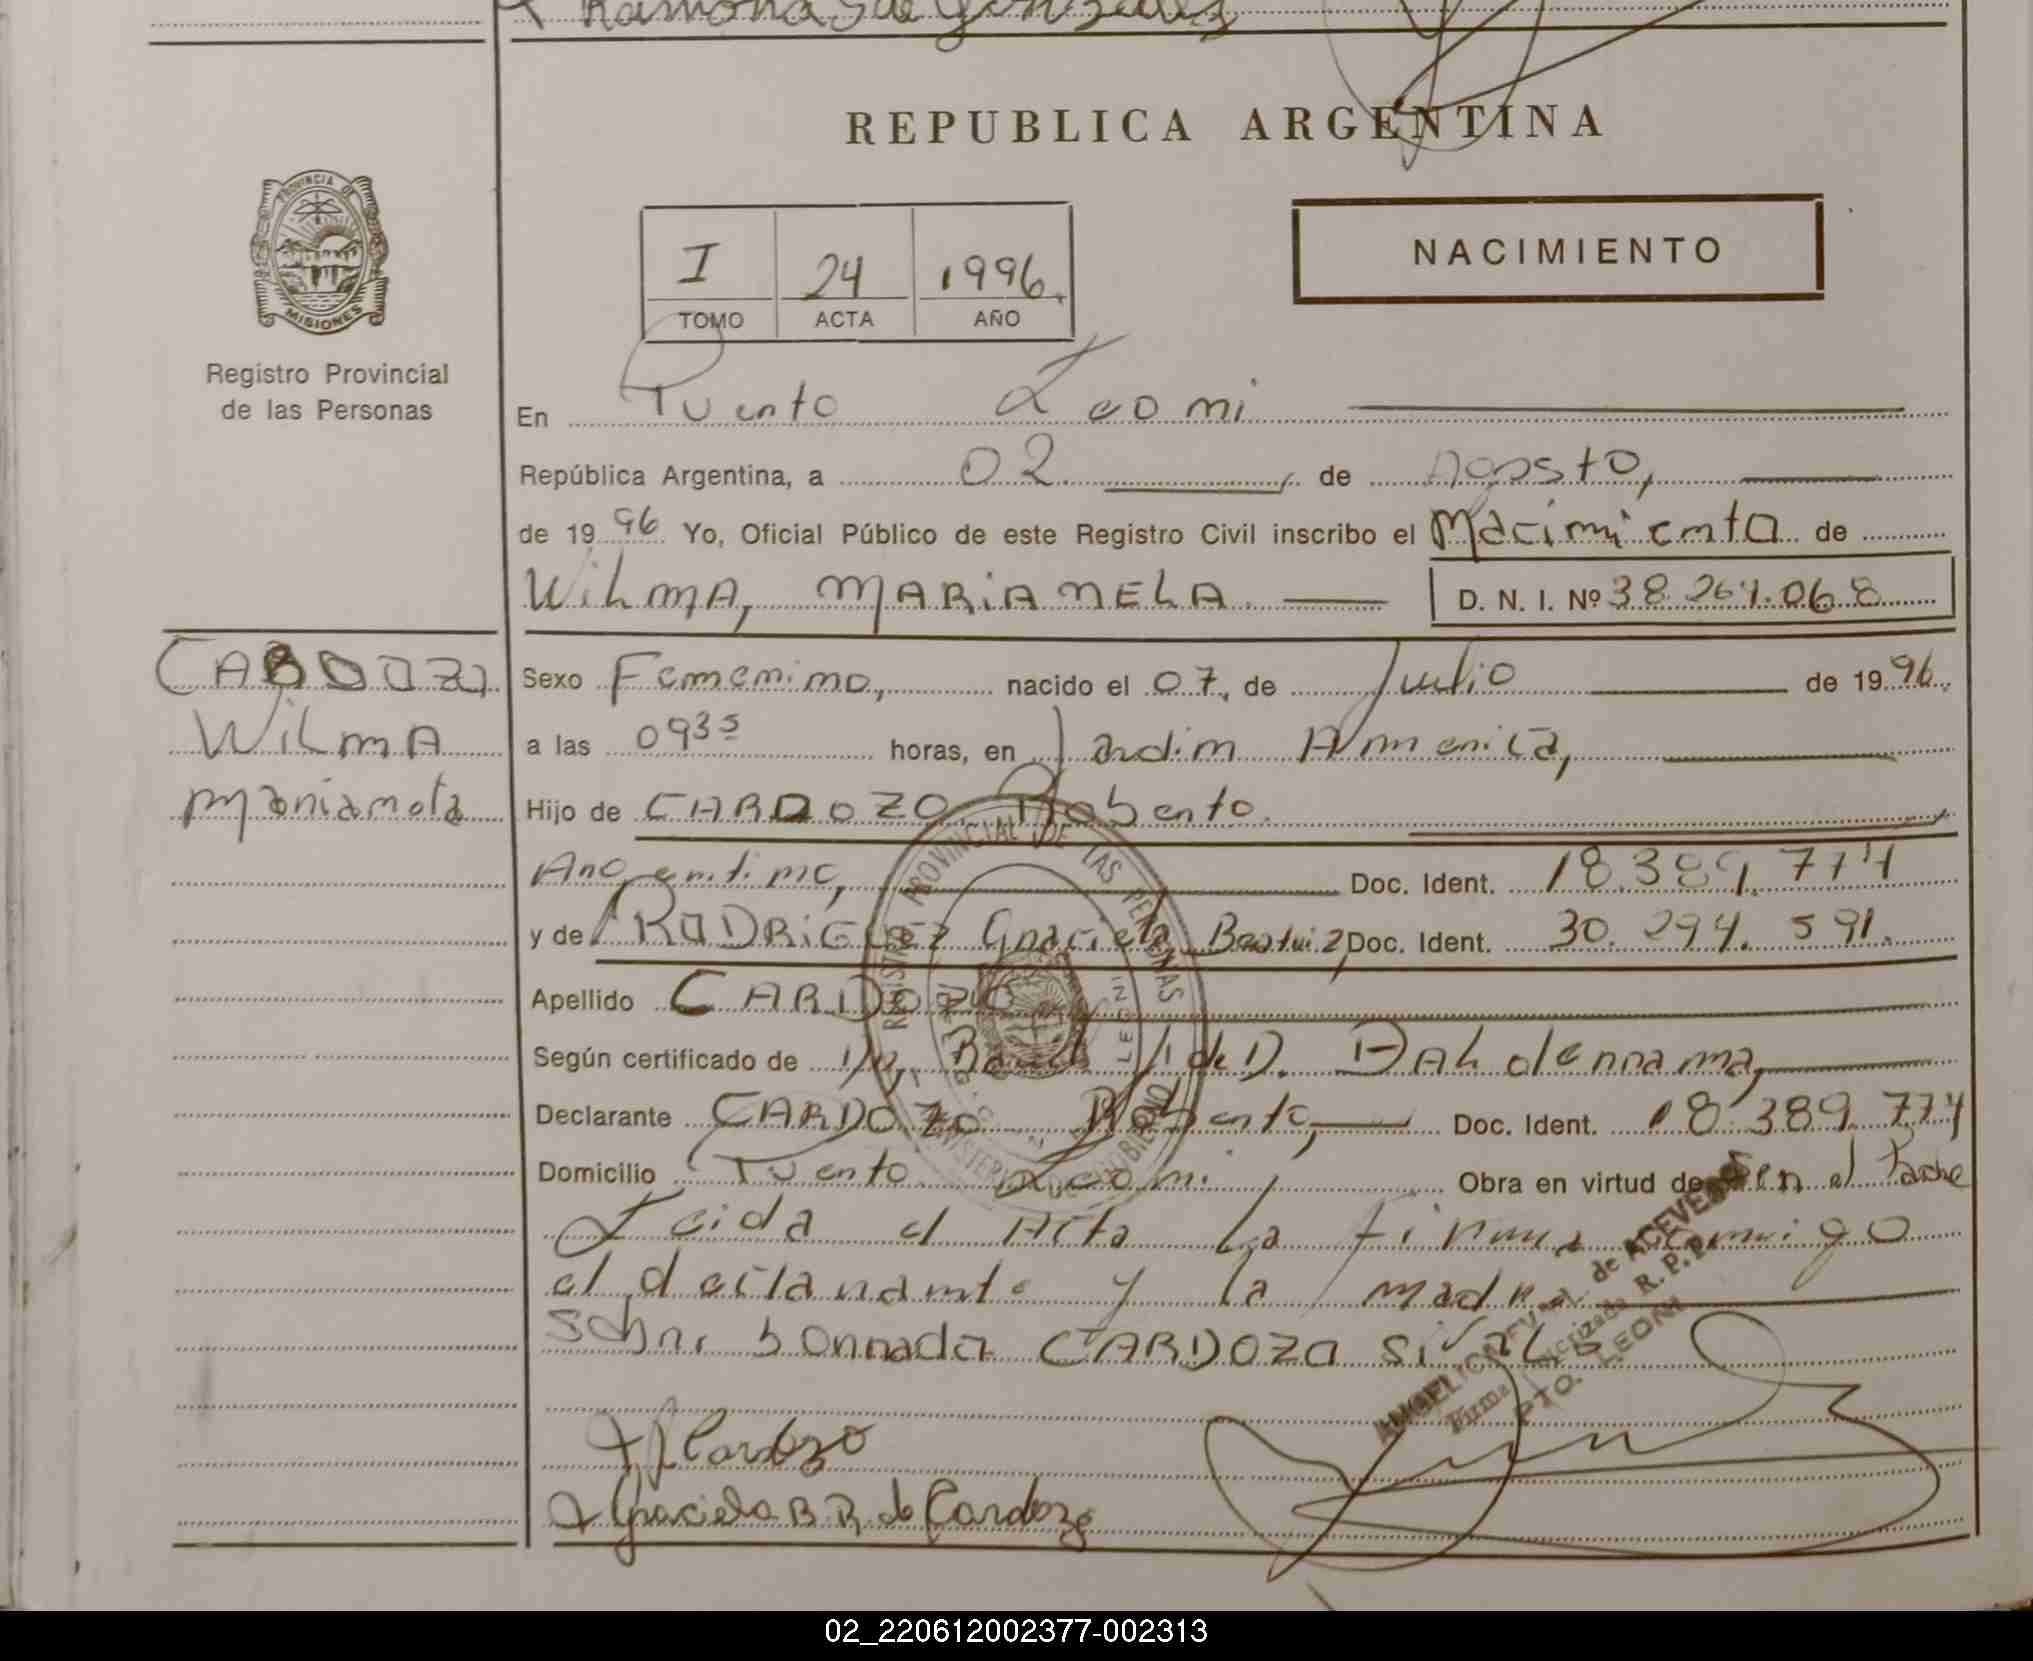 Ramona S de Gonzalez
REPUBLICA ARGENTINA
PROVINCIA DE
MISIONES
Registro Provincial
de las Personas
I 24 1996.
TOMO ACTA AÑO
NACIMIENTO
En Puerto Leoni
República Argentina, a 02 de Agosto,
de 1996 Yo, Oficial Público de este Registro Civil inscribo el Nacimiento de
WILMA, MARIANELA D. N. I. Nº 38.261.068
CARDOZO
WILMA
Marianela
Sexo Femenino, nacido el 07, de Julio de 1996
a las 0935 horas, en Jardin America,
Hijo de CARDOZO Roberto
Argentino, Doc. Ident. 18.389.774
y de RODRIGUEZ Graciela Beatriz, Doc. Ident. 30.294.591.
Apellido CARDOZO
Según certificado de de D. Dahdennama,
Declarante CARDOZO Roberto, Doc. Ident. 18.389.774
Domicilio Puerto Leoni, Obra en virtud de ser el Padre
Leida el Acta La firma conmigo
el declarante y la madre
Sobre borrada CARDOZO SI VALE
REGISTRO PROVINCIAL DE LAS PERSONAS
MINISTERIO DE GOBIERNO
de ACEVEDO
Firma Autorizada R.P.P.
PTO. LEONI
R Cardozo
Graciela B R de Cardozo
02_220612002377-002313